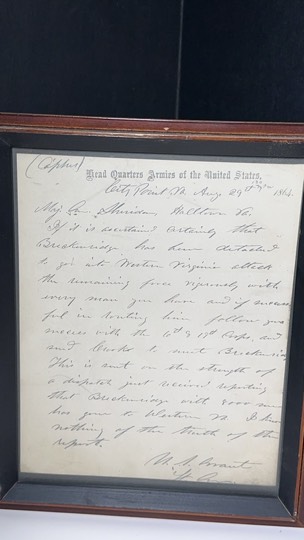 (Cipher)
Head Quarters Armies of the United States,
City Point Va Aug. 29th 1864.
Maj. Gn. Sheridan, Halltown Va.
If it is ascertained certainly that
Breckenridge has been detached
to go into Western Virginia attack
the remaining force vigorously with
every man you have and if success
ful in routing him follow your
success with the 6th & 19th Corps, and
send Crooks to meet Breckenridge
This is sent on the strength of
a dispatch just received reporting
that Breckenridge with 8000 men
has gone to Western Va. I know
nothing of the truth of the
report.
U. S. Grant